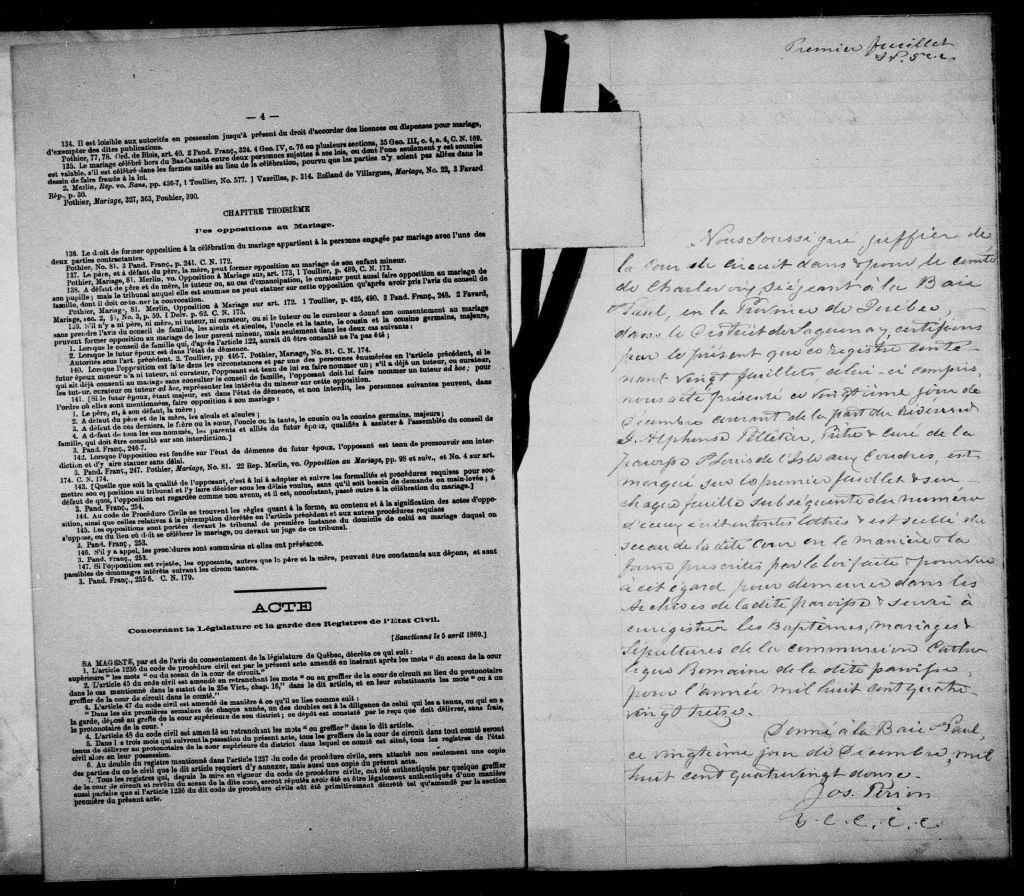 — 4 —
134. Il est loisible aux autorités en possession jusqu'à présent du droit d'accorder des licences ou dispenses pour mariage,
d'exempter des dites publications.
Pothier, 77, 78. Ord. de Blois, art. 40. 2 Pand. Franç., 324. 4 Geo. IV, c. 76 en plusieurs sections, 35 Geo. III, c. 4, s. 4, C. N. 169.
135. Le mariage célébré hors du Bas-Canada entre deux personnes sujettes à ses lois, ou dont l'une seulement y est soumise
est valable, s'il est célébré dans les formes usitées au lieu de la célébration, pourvu que les parties n'y soient pas allées dans le
dessein de faire fraude à la loi.
2. Merlin, Rép. vo. Bans, pp. 436-7, 1 Toullier, No. 577. 1 Vazeilles, p. 314. Rolland de Villargues, Mariage, No. 22, 3 Favard
Rép., p. 30.
Pothier, Mariage, 327, 363, Pouhier, 390.
CHAPITRE TROISIÈME
Des oppositions au Mariage.
136. Le droit de former opposition à la célébration du mariage appartient à la personne engagée par mariage avec l'une des
deux parties contractantes.
Pothier, No. 81. 3 Pand. Franç., p. 241. C. N. 172.
137. Le père, et à défaut du père, la mère, peut former opposition au mariage de son enfant mineur.
Pothier, Mariage, 81. Merlin, vo. Opposition à Mariage sur, art. 173, 1 Toullier, p. 489, C. N. 173.
138. A défaut de père et de mère, le tuteur ou, au cas d'émancipation, le curateur peut aussi faire opposition au mariage de
son pupille; mais le tribunal auquel elle est soumise ne peut statuer sur cette opposition qu'après avoir pris l'avis du conseil de
famille, dont il doit ordonner la convocation.
Pothier, Mariage, 81. Merlin, Opposition à Mariage sur art. 172. 1 Toullier, p. 425, 490. 3 Pand. Franç., 248. 2 Favard,
Mariage, sec. 2, § 1, No. 3, p. 59. 1 Delv. p. 62. C. N. 175.
139. S'il n'y a ni père, ni mère, ni tuteur, ni curateur, ou si le tuteur ou le curateur a donné son consentement au mariage
sans prendre l'avis du conseil de famille, les aïeuls et aïeules, l'oncle et la tante, le cousin et la cousine germains, majeurs,
peuvent former opposition au mariage de leur parent mineur, mais seulement dans les deux cas suivants:
1. Lorsque le conseil de famille qui, d'après l'article 122, aurait dû être consulté ne l'a pas été;
2. Lorsque le futur époux est dans l'état de démence.
Autorités sous l'art. précédent. 2. Toullier, pp. 446-7. Pothier, Mariage, No. 81. C. N. 174.
140. Lorsque l'opposition est faite dans les circonstances et par une des personnes énumérées en l'article précédent, si le
futur époux mineur n'a ni tuteur, ni curateur, l'opposant est tenu de lui en faire nommer un; s'il a déjà un tuteur, ou curateur,
qui ait déjà consenti au mariage sans consulter le conseil de famille, l'opposant doit lui faire nommer un tuteur ad hoc; pour
les tuteur, curateur ou tuteur ad hoc, représenter les intérêts du mineur sur cette opposition.
141. [Si le futur époux, étant majeur, est dans l'état de démence, et non interdit, les personnes suivantes peuvent, dans
l'ordre où elles sont mentionnées, faire opposition à son mariage:
1. Le père, et, à son défaut, la mère;
2. A défaut du père et de la mère, les aïeuls et aïeules;
3. A défaut de ces derniers, le frère ou la sœur, l'oncle ou la tante, le cousin ou la cousine germains, majeurs;
4. A défaut de tous les sus-nommés, les parents et alliés du futur époux, qualifiés à assister à l'assemblée du conseil de
famille, qui doit être consulté sur son interdiction.]
3. Pand. Franç., 246-7.
142. Lorsque l'opposition est fondée sur l'état de démence du futur époux, l'opposant est tenu de promouvoir son inter-
diction et d'y faire statuer sans délai.
3. Pand. Franç., 247. Pothier, Mariage, No. 81. 22 Rep. Merlin, vo. Opposition au Mariage, pp. 98 et suiv., et No. 4 sur art.
174. C. N. 174.
143. [Quelle que soit la qualité de l'opposant, c'est à lui à adopter et suivre les formalités et procédures requises pour sou-
mettre son opposition au tribunal et l'y faire décider sous les délais voulus, sans qu'il soit besoin de demande en main-levée; à
défaut de quoi, l'opposition est regardée comme non avenu, et il est, nonobstant, passé outre à la célébration du mariage.]
3. Pand. Franç., 254.
144. Au code de Procédure Civile se trouvent les règles quant à la forme, au contenu et à la signification des actes d'oppo-
sition, ainsi que celles relatives à la péremption décrétée en l'article précédent et aux autres procédures requises
145. Les oppositions sont portées devant le tribunal de première instance du domicile de celui au mariage duquel on
s'oppose, ou du lieu où doit se célébrer le mariage, ou devant un juge de ce tribunal.
3. Pand. Franç, 253.
146. S'il y a appel, les procédures sont sommaires et elles ont préséance.
3. Pand. Franç., 253.
147. Si l'opposition est rejetée, les opposants, autres que le père et la mère, peuvent être condamnés aux dépens, et sont
passibles de dommages intérêts suivant les circonstances.
3. Pand. Franç., 255 6. C. N. 179.
ACTE
Concernant la Législature et la garde des Registres de l'Etat Civil.
[Sanctionné le 5 avril 1869.]
SA MAGESTÉ, par et de l'avis du consentement de la législature de Québec, décrète ce qui suit:
1. L'article 1236 du code de procédure civil est par le présent acte amendé en insérant après les mots "du sceau de la cour
supérieure" les mots "ou du sceau de la cour de circuit."
2. L'article 45 du code civil est amendé en retranchant les mots "ou au greffier de la cour de circuit au lieu du protonotaire
dans le cas mentionné dans le statut de la 25e Vict., chap. 16," dans le dit article, et en leur substituant les mots "ou à un
greffier de la cour de circuit dans le comté."
4. L'article 47 du code civil est amendé de manière à ce qu'il se lise comme suit:
"Dans les six premières semaines de chaque année, un des doubles est à la diligence de celui qui les a tenus, ou qui en a
la garde, déposé au greffe de la cour supérieure de son district; ce dépôt est constaté par le reçu que doit délivrer, sans frais,
le protonotaire de la cour."
4. L'article 48 du code civil est amendé en retranchant les mots "ou greffier" dans le dit article.
5. Dans les trois mois qui suivront la passation du présent acte, tous les greffiers de la cour de circuit dans tout comté seront
tenus de délivrer au protonotaire de la cour supérieure du district dans lequel ce comté est situé, tous les registres de l'état
civil alors en leur possession.
6. Au double du registre mentionné dans l'article 1237 du code de procédure civile, sera attaché non seulement une copie
des parties du code civil que le dit article requiert d'y annexer, mais aussi une copie du présent acte.
7. Tous les registres qui, depuis la mise en vigueur du code de procédure civile, ont été authentiqués par quelque greffier
de la cour de circuit et revêtu du sceau de la dite cour, seront réputés avoir été et être légalement authentiqués d'une manière
aussi parfaite que si l'article 1236 du dit code de procédure civile eût été primitivement décrété tel qu'amendé par la section
première du présent acte.
Premier feuillet
Nous soussigné greffier de
la Cour de circuit dans & pour le comté
de Charlevoix, siégeant à la Baie
Paul, en la Province de Québec,
dans le District de Saguenay, certifions
par le présent que ce registre conte
nant vingt feuillets celui-ci compris,
nous a été présenté ce vingtième jour de
Décembre courant de la part du Révérend
J. Alphonse Pelletier, Prêtre & curé de la
paroisse St Louis de l'Isle aux Coudres, est
marqué sur le premier feuillet & sur
chaque feuille subséquente du numéro
d'iceux écrit en toutes lettres & est scellé du
sceau de la dite Cour en la manière & la
forme prescrites par la loi faite & pourvue
à cet égard pour demeurer dans les
Archives de la dite paroisse & servir à
enregistrer les Baptêmes, mariages &
Sépultures de la communion Catho
lique Romaine de la dite paroisse
pour l'année mil huit cent quatre
vingt treize.
Donné à la Baie Paul,
ce vingtième jour de Décembre, mil
huit cent quatrevingt douze.
Jos. Perron